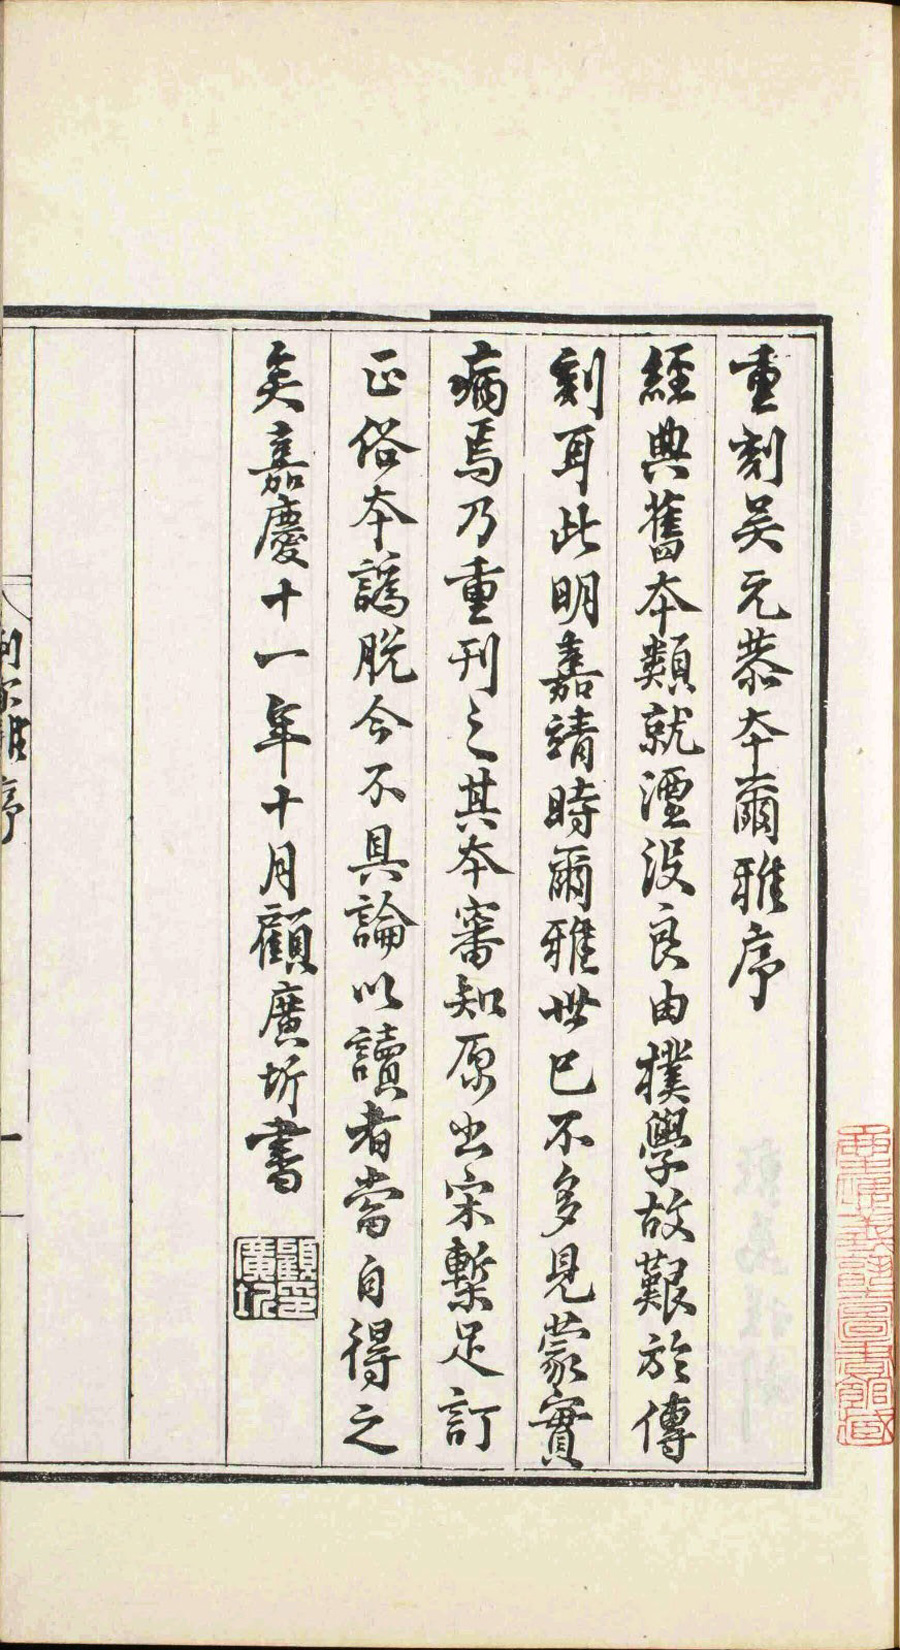 重刻吴元恭本爾雅序
經典舊本類就湮没良由樸學故艱於傳
刻耳此明嘉靖時爾雅世已不多見蒙實
病焉乃重刊之其本審知原出宋槧足訂
正俗本譌脱今不具論以讀者當自得之
矣嘉慶十一年十月顧廣圻書
顧印廣圻
序
一